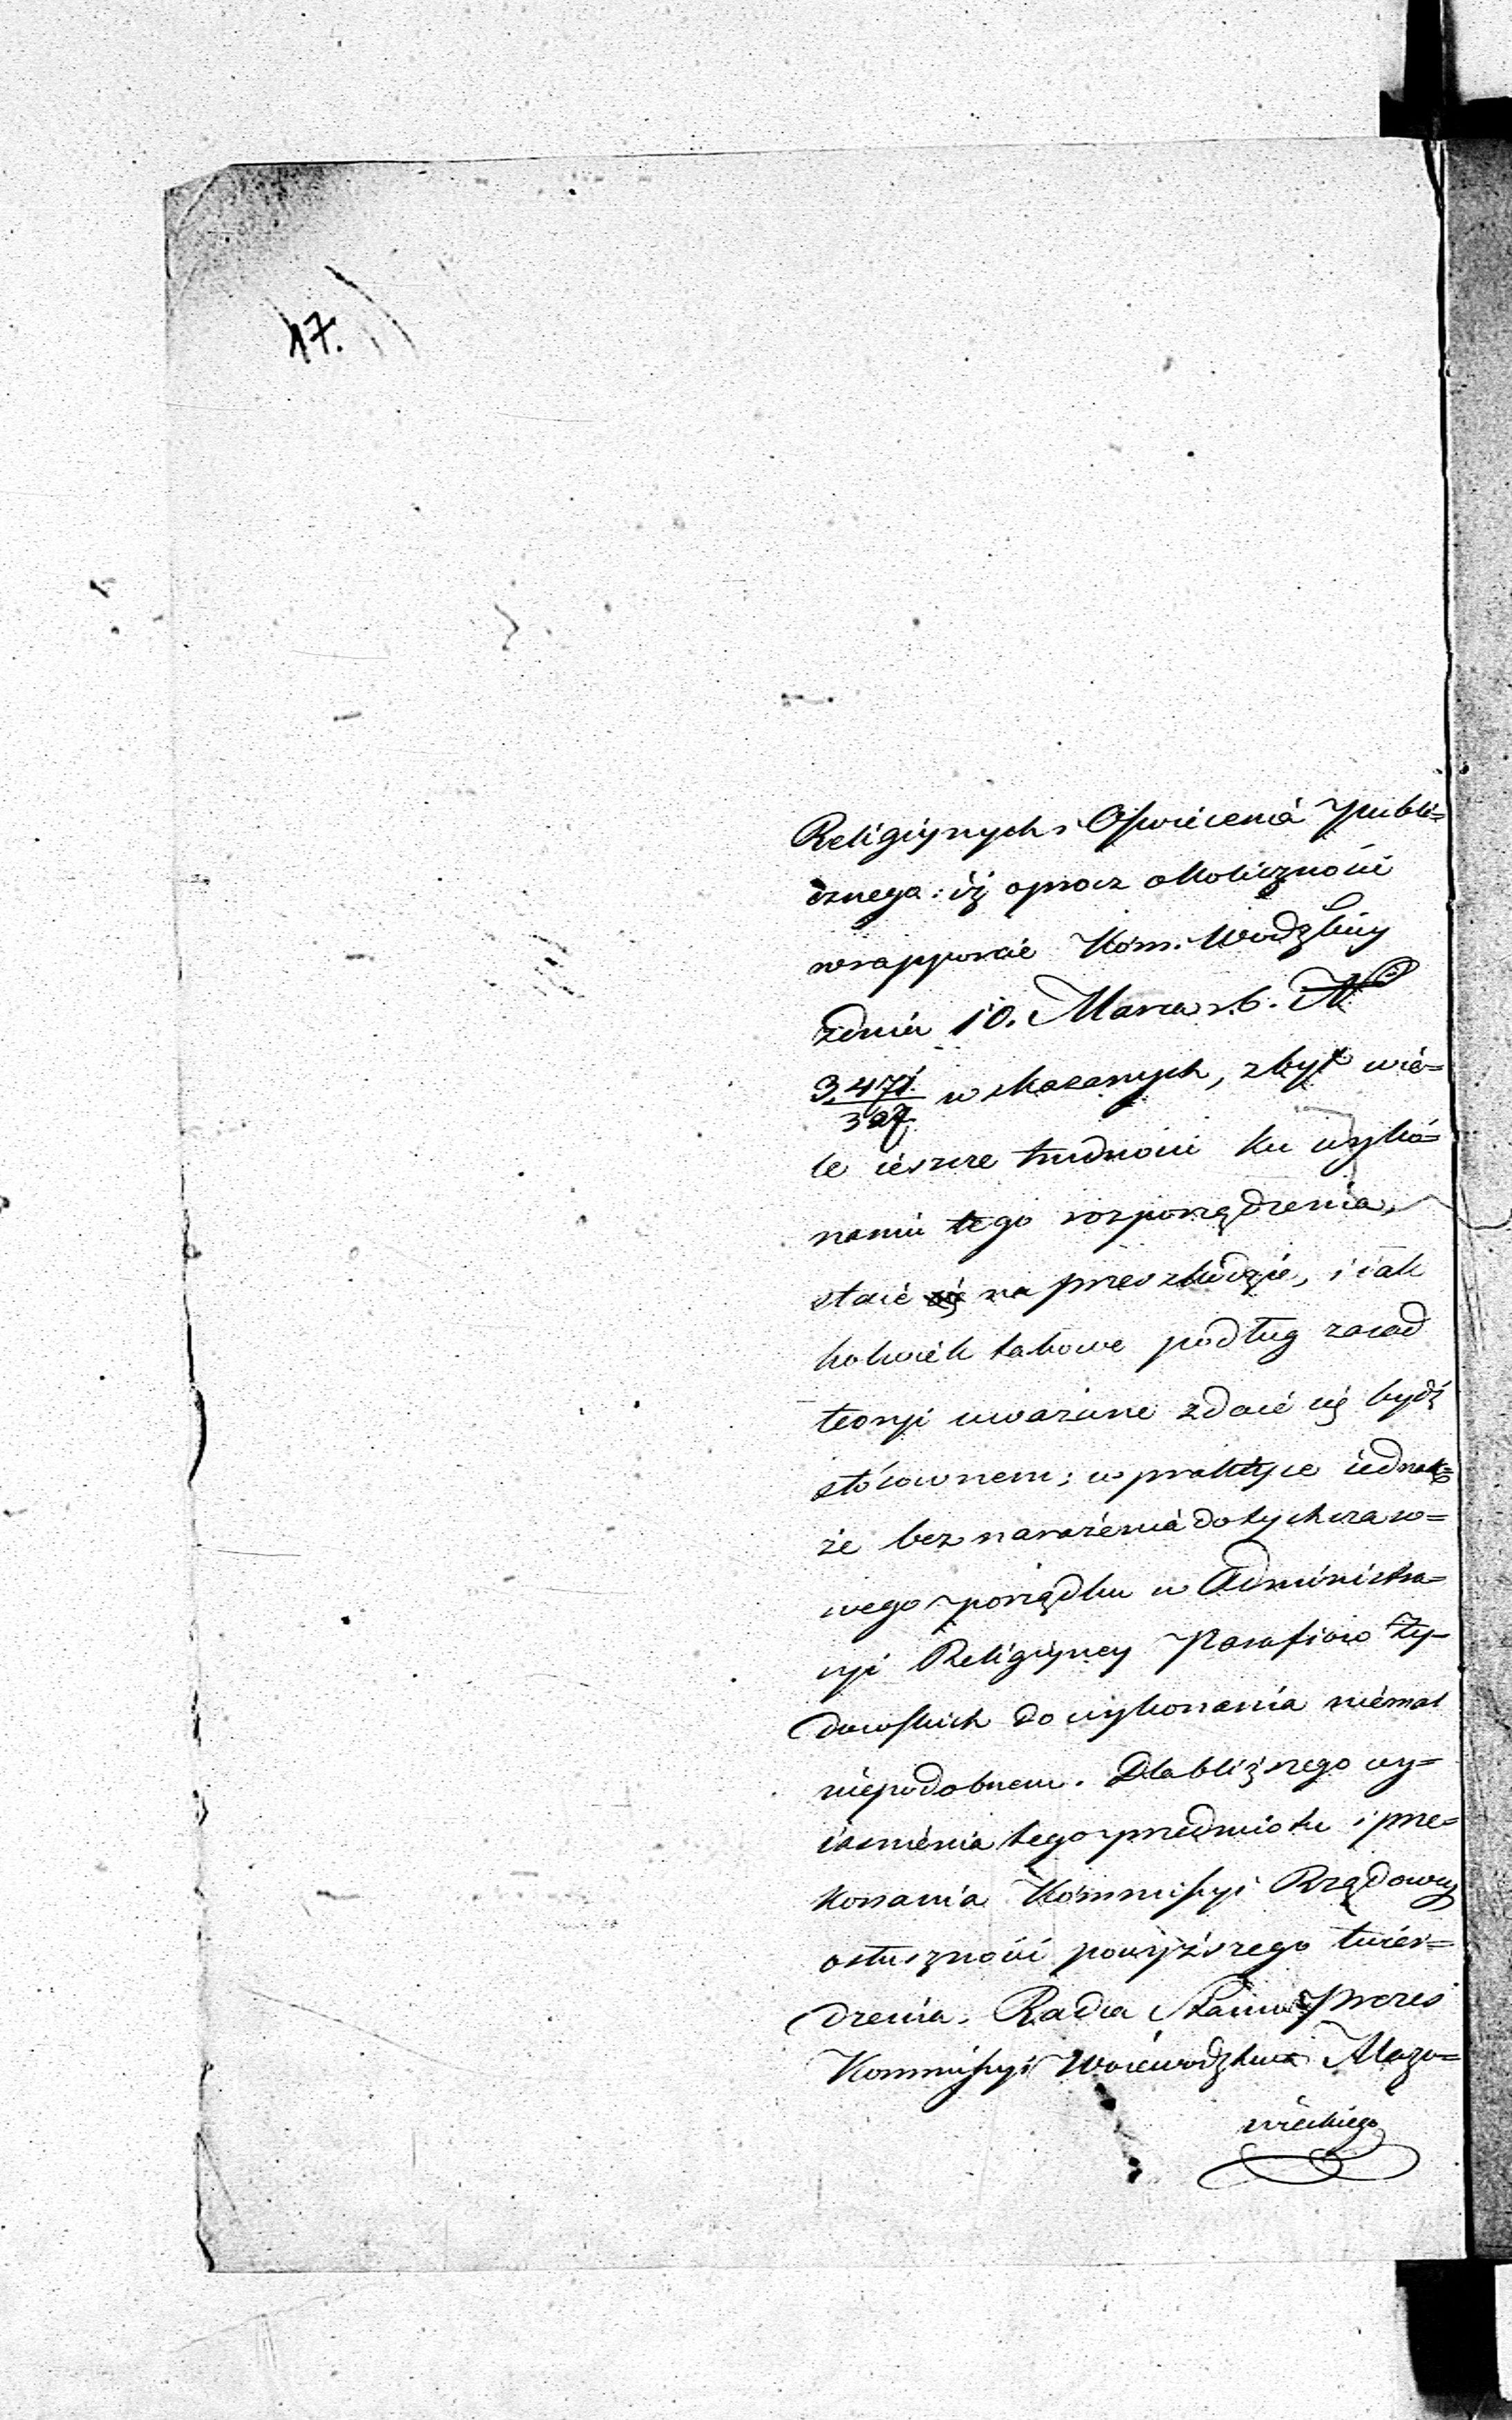 17.
Religiynych i Oświecenia Publi=
cznego: iż oprocz okoliczności
wrapporcie Kom. Wodzkiey
zdnia 10. Marca r. b. No
3,471/327 wskazanych, zbyt wie=
le ieszcze trudności ku wyko=
naniu tego rozporządzenia,
staie na przeszkodzie, i iak
kolwiek takowe podług zasad
teoryi uważane zdaie się bydź
stósownem; w praktyce iednak=
że bez narażenia dotychczaso=
wego porządku w Administra=
cyi Religiyney Parafiow Ży=
dowskich do wykonania niemal
niepodobnem. Dla bliższego wy=
iaśnienia tego przedmiotu i prze=
konania Kommissyi Rządowey
o słuszności powyższego twier=
dzenia, Radca Stanu Prezes
Kommissyi Woiewodztwa Mazo=
wieckiego